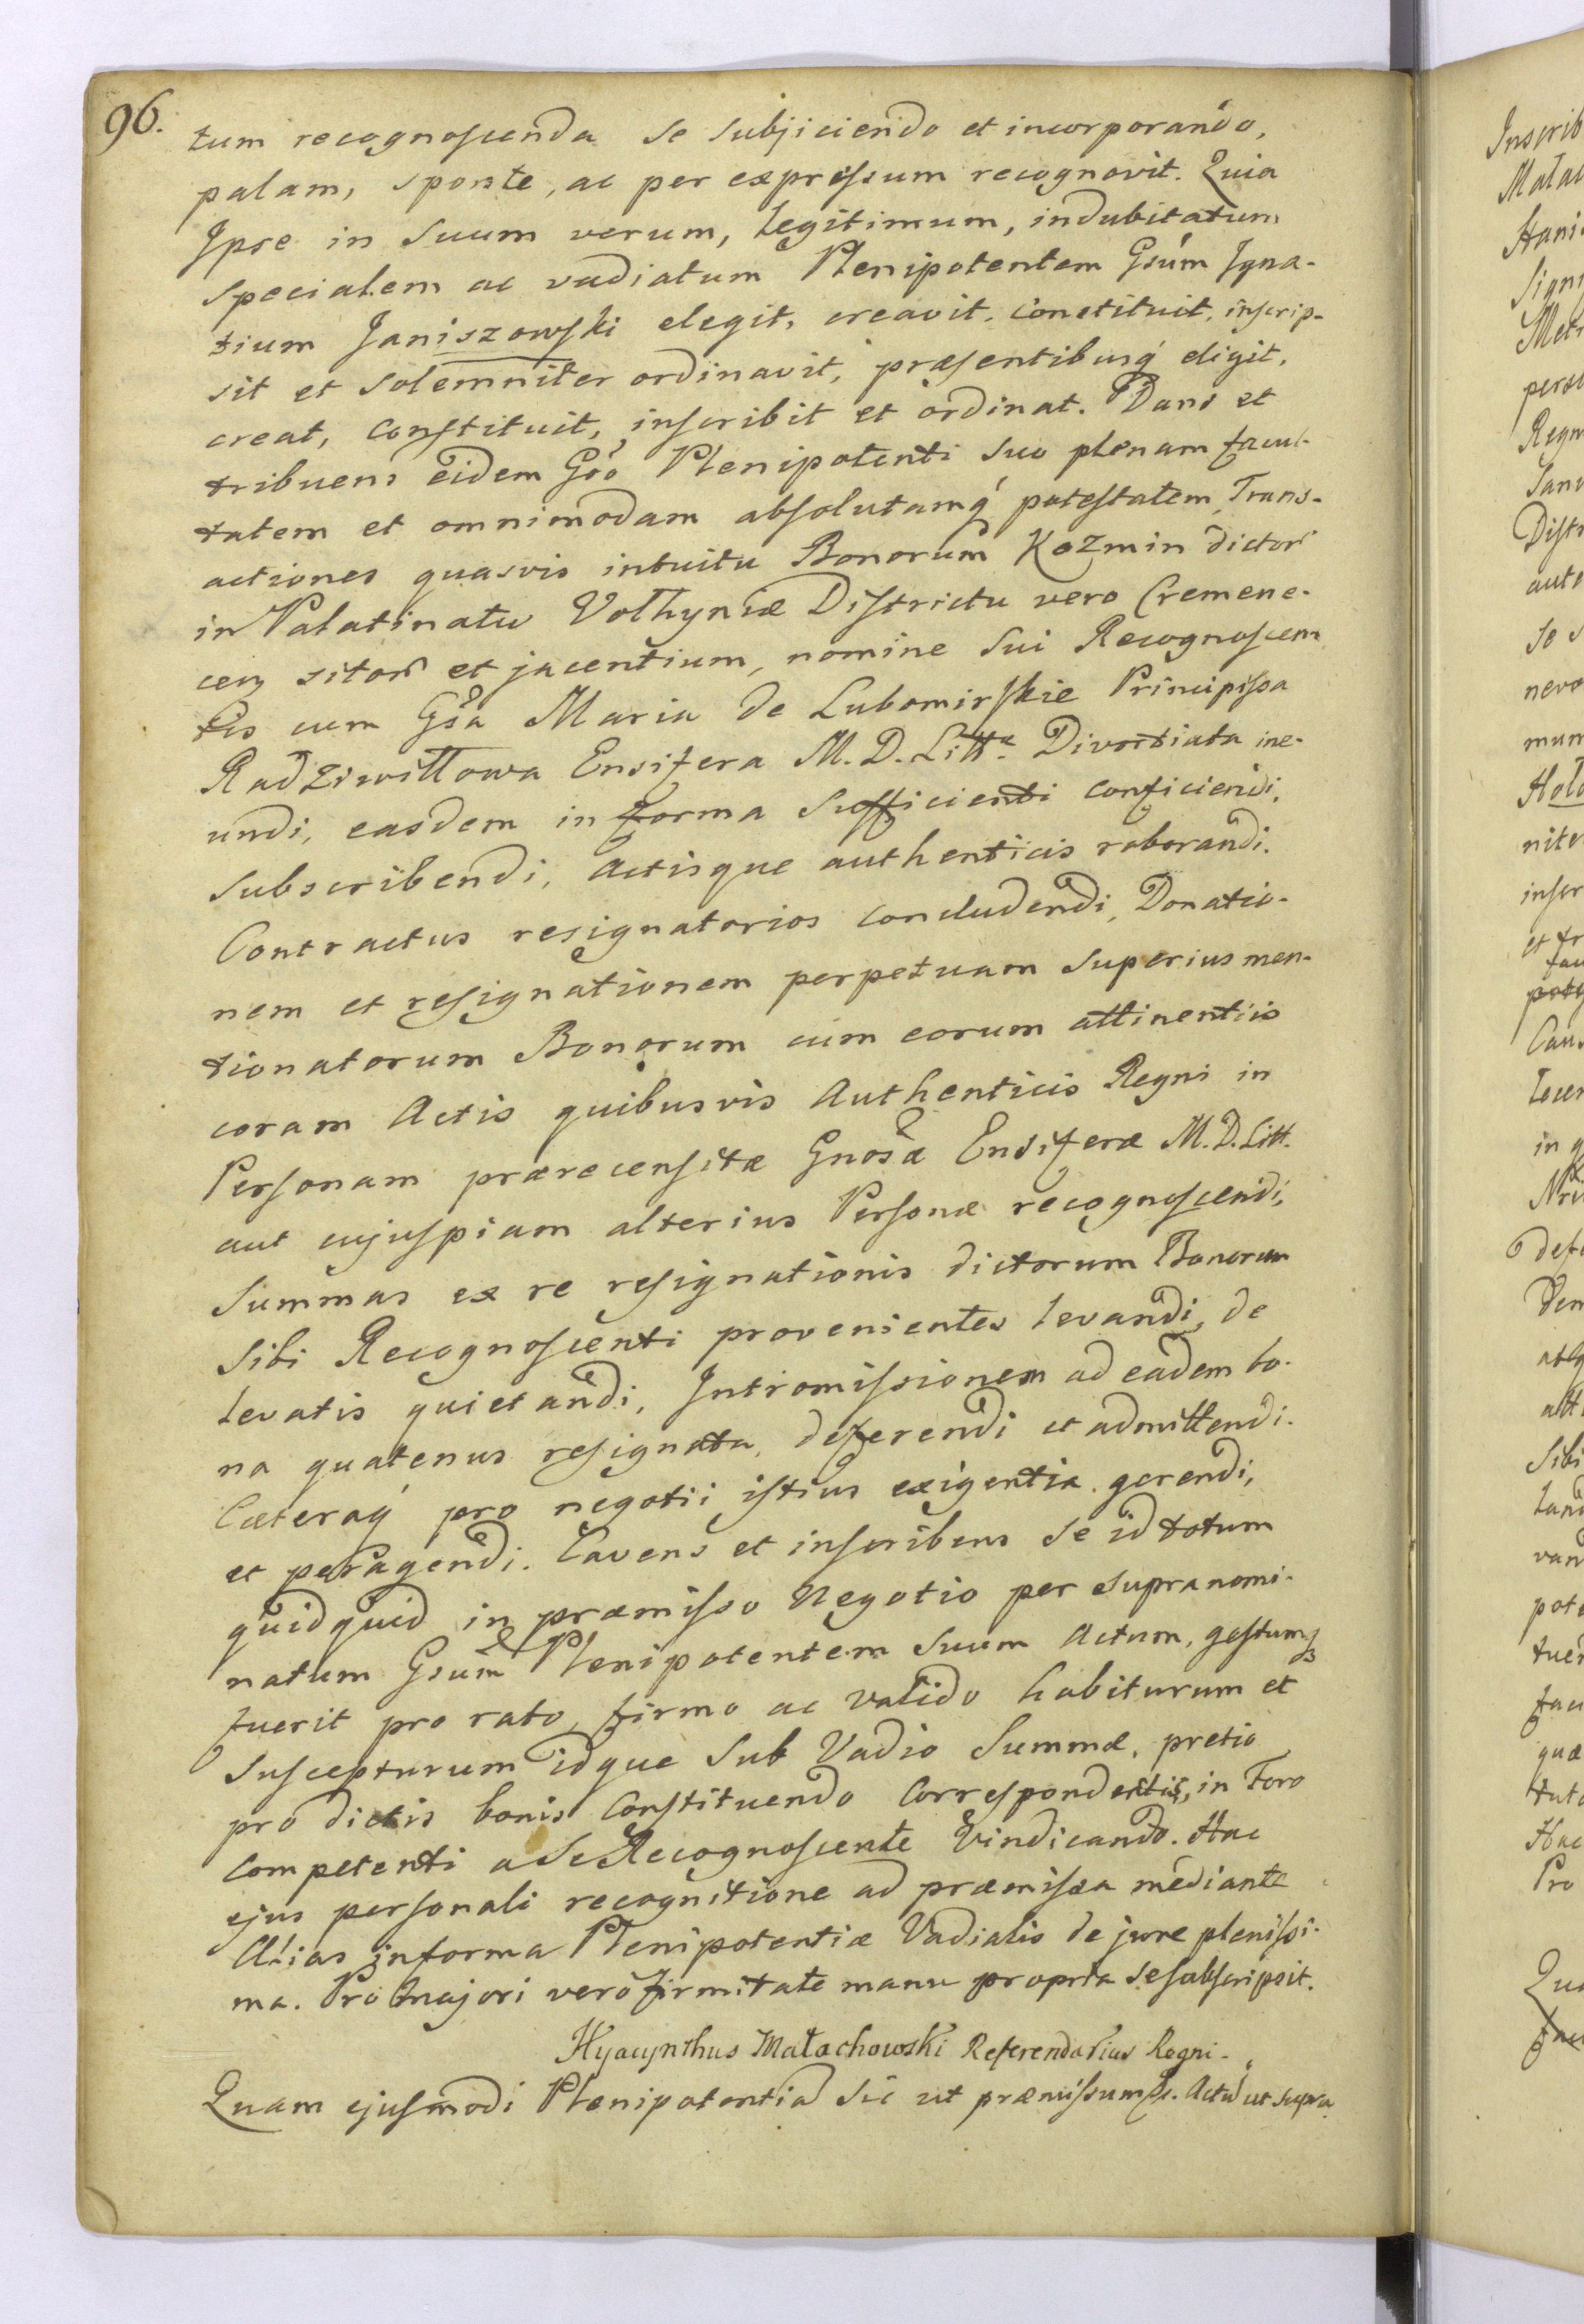 96.
tum recognoscenda se subjiciendo et incorporando,
palam, sponte, ac per expressum recognovit. Quia
Ipse in Suum verum, legitimum, indubitatum
specialem ac vadiatum Plenipotentem Gsum Igna-
tium Janiszowski elegit, creavit, constituit, inscrip-
sit et solemniter ordinavit, præsentibusq́ eligit,
creat, constituit, inscribit et ordinat. Dans et
tribuens eidem Gso Plenipotenti suo plenam facul-
tatem et omnimodam absolutamq́ potestatem, Trans-
actiones quasvis intuitu Bonorum Kozmin dictor
in Palatinatu Volhyniæ Districtu vero Cremene-
cen sitor et jacentium, nomine sui Recognoscen
tis cum Gsa Maria de Lubomirskie Principissa
Radziwiłłowa Ensifera M. D. Litt. Divortiata ine-
undi, easdem in forma sufficienti conficiendi,
subscribendi, actisque authenticis roborandi.
Contractus resignatorios concludendi, Donatio-
nem et resignationem perpetuam superius men-
tionatorum Bonorum cum eorum attinentiis
coram Actis quibusvis Authenticis Regni in
Personam prærecensitæ Gnosæ Ensiferæ M. D. Litt.
aut cujuspiam alterius Personæ recognoscendi,
Summas ex re resignationis dictorum Bonorum
sibi Recognoscenti provenientes levandi, de
levatis quietandi, Intromissionem ad eadem bo-
na quatenus resignata, deferendi et admittendi.
Cæteraq́ pro negotii istius exigentia gerendi,
et peragendi. Cavens et inscribens se id totum
quidquid in præmisso Negotio per supranomi-
natum Gsum Plenipotentem suum Actum, gestumq
fuerit pro rato, firmo ac valido habiturum et
suscepturum idque sub Vadio Summæ, pretio
pro dictis bonis constituendo correspondentis, in Foro
competenti a se Recognoscente vindicando. Hac
ejus personali recognitione ad præmissa mediante
Alias in forma Plenipotentiæ Vadialis de jure plenissi-
ma. Pro majori vero firmitate manu propria se subscripsit.
Hyacynthus Małachowski Referendarius Regni.
Quam ejusmodi Plenipotentia sic ut præmissum Actu ut supra
Inscrib